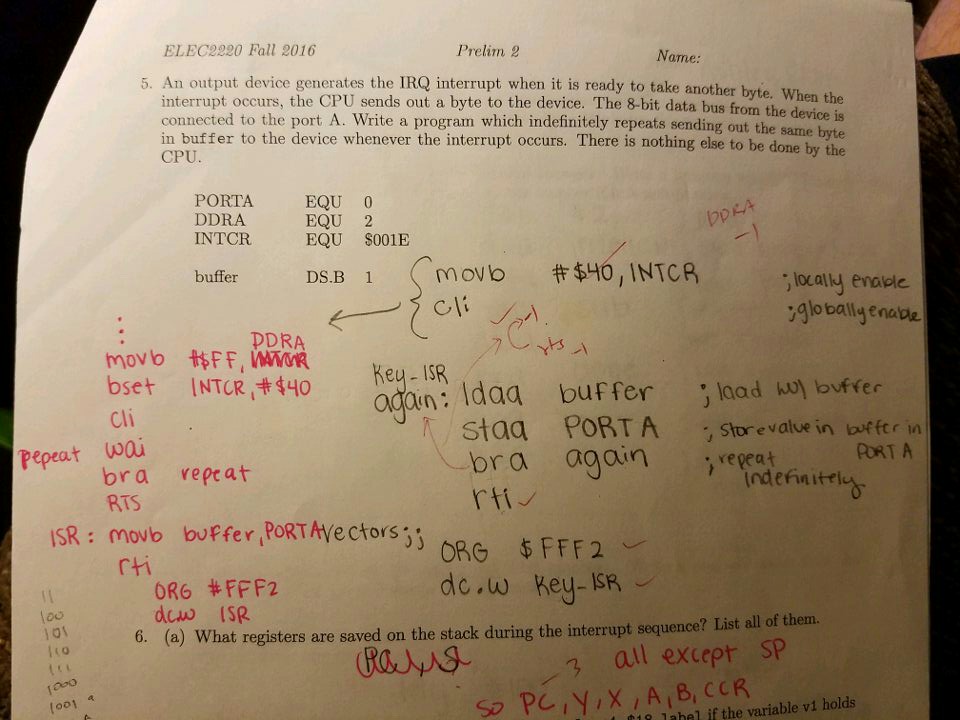 ELEC2220 Fall 2016 Prelim 2 Name:
5. An output device generates the IRQ interrupt when it is ready to take another byte. When the
interrupt occurs, the CPU sends out a byte to the device. The 8-bit data bus from the device is
connected to the port A. Write a program which indefinitely repeats sending out the same byte
in buffer to the device whenever the interrupt occurs. There is nothing else to be done by the
CPU.
PORTA EQU 0
DDRA EQU 2
INTCR EQU $001E
DDRA
-1
buffer DS.B 1
movb #$40, INTCR ;locally enable
cli ;globally enable
-1
rts -1
Key-ISR
again: ldaa buffer ; load w/ buffer
staa PORTA ; store value in buffer in PORT A
bra again ; repeat indefinitely
rti
vectors;;
ORG $FFF2
dc.w Key-ISR
DDRA
movb #$FF, INTCR
bset INTCR, #$40
cli
repeat wai
bra repeat
RTS
ISR: movb buffer, PORTA
rti
ORG #FFF2
dc.w ISR
11
100
101
110
111
1000
1001
6. (a) What registers are saved on the stack during the interrupt sequence? List all of them.
-3 all except SP
so PC, Y, X, A, B, CCR
label if the variable v1 holds